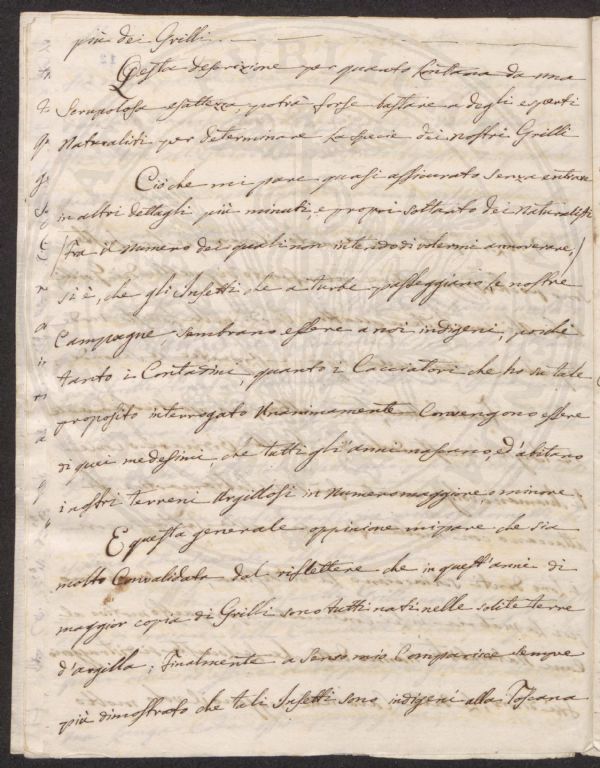 più dei Grilli
Questa descrizione per quanto lontana da una
Scrupolosa esattezza, potrà forse bastare a degli esperti
Naturalisti per determinare la specie dei nostri Grilli
Ciò che mi pare quasi assicurato senza entrare
in altri dettagli più minuti, e propri soltanto dei Naturalisti
(Fra il numero dei quali non intendo di volermi annoverare,)
si è, che gli Insetti che a turbe passeggiano le nostre
Campagne, sembrano essere a noi indigeni, poiché
tanto i Contadini, quanto i Cacciatori che ho su tale
proposito interrogato Unanimamente Convengono essere
di quei medesimi, che tutti gli anni nascano, ed abitano
i nostri terreni Argillosi in numero maggiore, o minore
E questa generale oppinione mi pare che sia
molto Convalidata dal riflettere che in quest'anni di
maggior copia di Grilli sono tutti nati nelle solite terre
d'argilla; Finalmente a senso mio Comparisce sempre
più dimostrato che tali Insetti sono indigeni alla Toscana